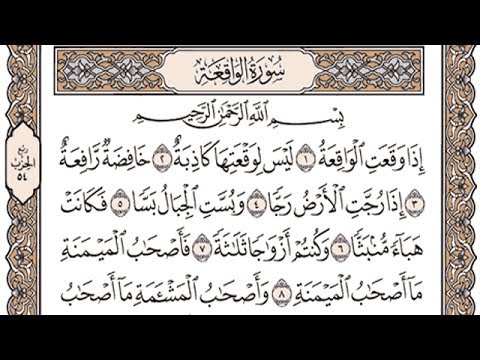 سُورَةُ الوَاقِعَةِ
بِسْمِ ٱللَّهِ ٱلرَّحْمَٰنِ ٱلرَّحِيمِ
إِذَا وَقَعَتِ ٱلْوَاقِعَةُ ١ لَيْسَ لِوَقْعَتِهَا كَاذِبَةٌ ٢ خَافِضَةٌ رَّافِعَةٌ
٣ إِذَا رُجَّتِ ٱلْأَرْضُ رَجًّا ٤ وَبُسَّتِ ٱلْجِبَالُ بَسًّا ٥ فَكَانَتْ
هَبَآءً مُّنۢبَثًّا ٦ وَكُنتُمْ أَزْوَٰجًا ثَلَٰثَةً ٧ فَأَصْحَٰبُ ٱلْمَيْمَنَةِ
مَآ أَصْحَٰبُ ٱلْمَيْمَنَةِ ٨ وَأَصْحَٰبُ ٱلْمَشْـَٔمَةِ مَآ أَصْحَٰبُ
رُبع
الحِزْب
٥٤